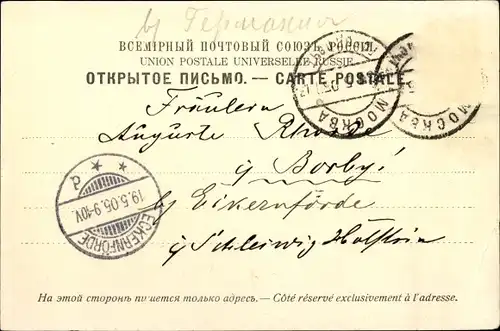 въ Германію
ВСЕМІРНЫЙ ПОЧТОВЫЙ СОЮЗЪ. РОССІЯ.
UNION POSTALE UNIVERSELLE. RUSSIE.
ОТКРЫТОЕ ПИСЬМО. — CARTE POSTALE
МОСКВА
МОСКВА
Fräulein
Auguste
Borby!
19.5.05.9-10V.
ECKERNFÖRDE
b/ Eckernförde
Schleswig Holstein
На этой сторонѣ пишется только адресъ. — Côté réservé exclusivement à l'adresse.